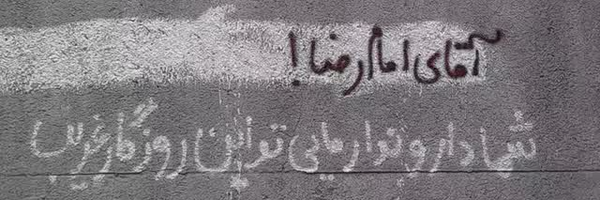 آقای امام رضا!
شما دار و ندار مایی تو این روزگار غریب